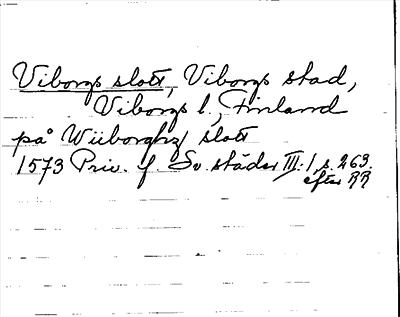 Viborgs slott, Viborgs stad,
Viborgs l., Finland
på Wiiborghz slott
1573 Priv. f. Sv. städer III:1 s. 263.
efter RR